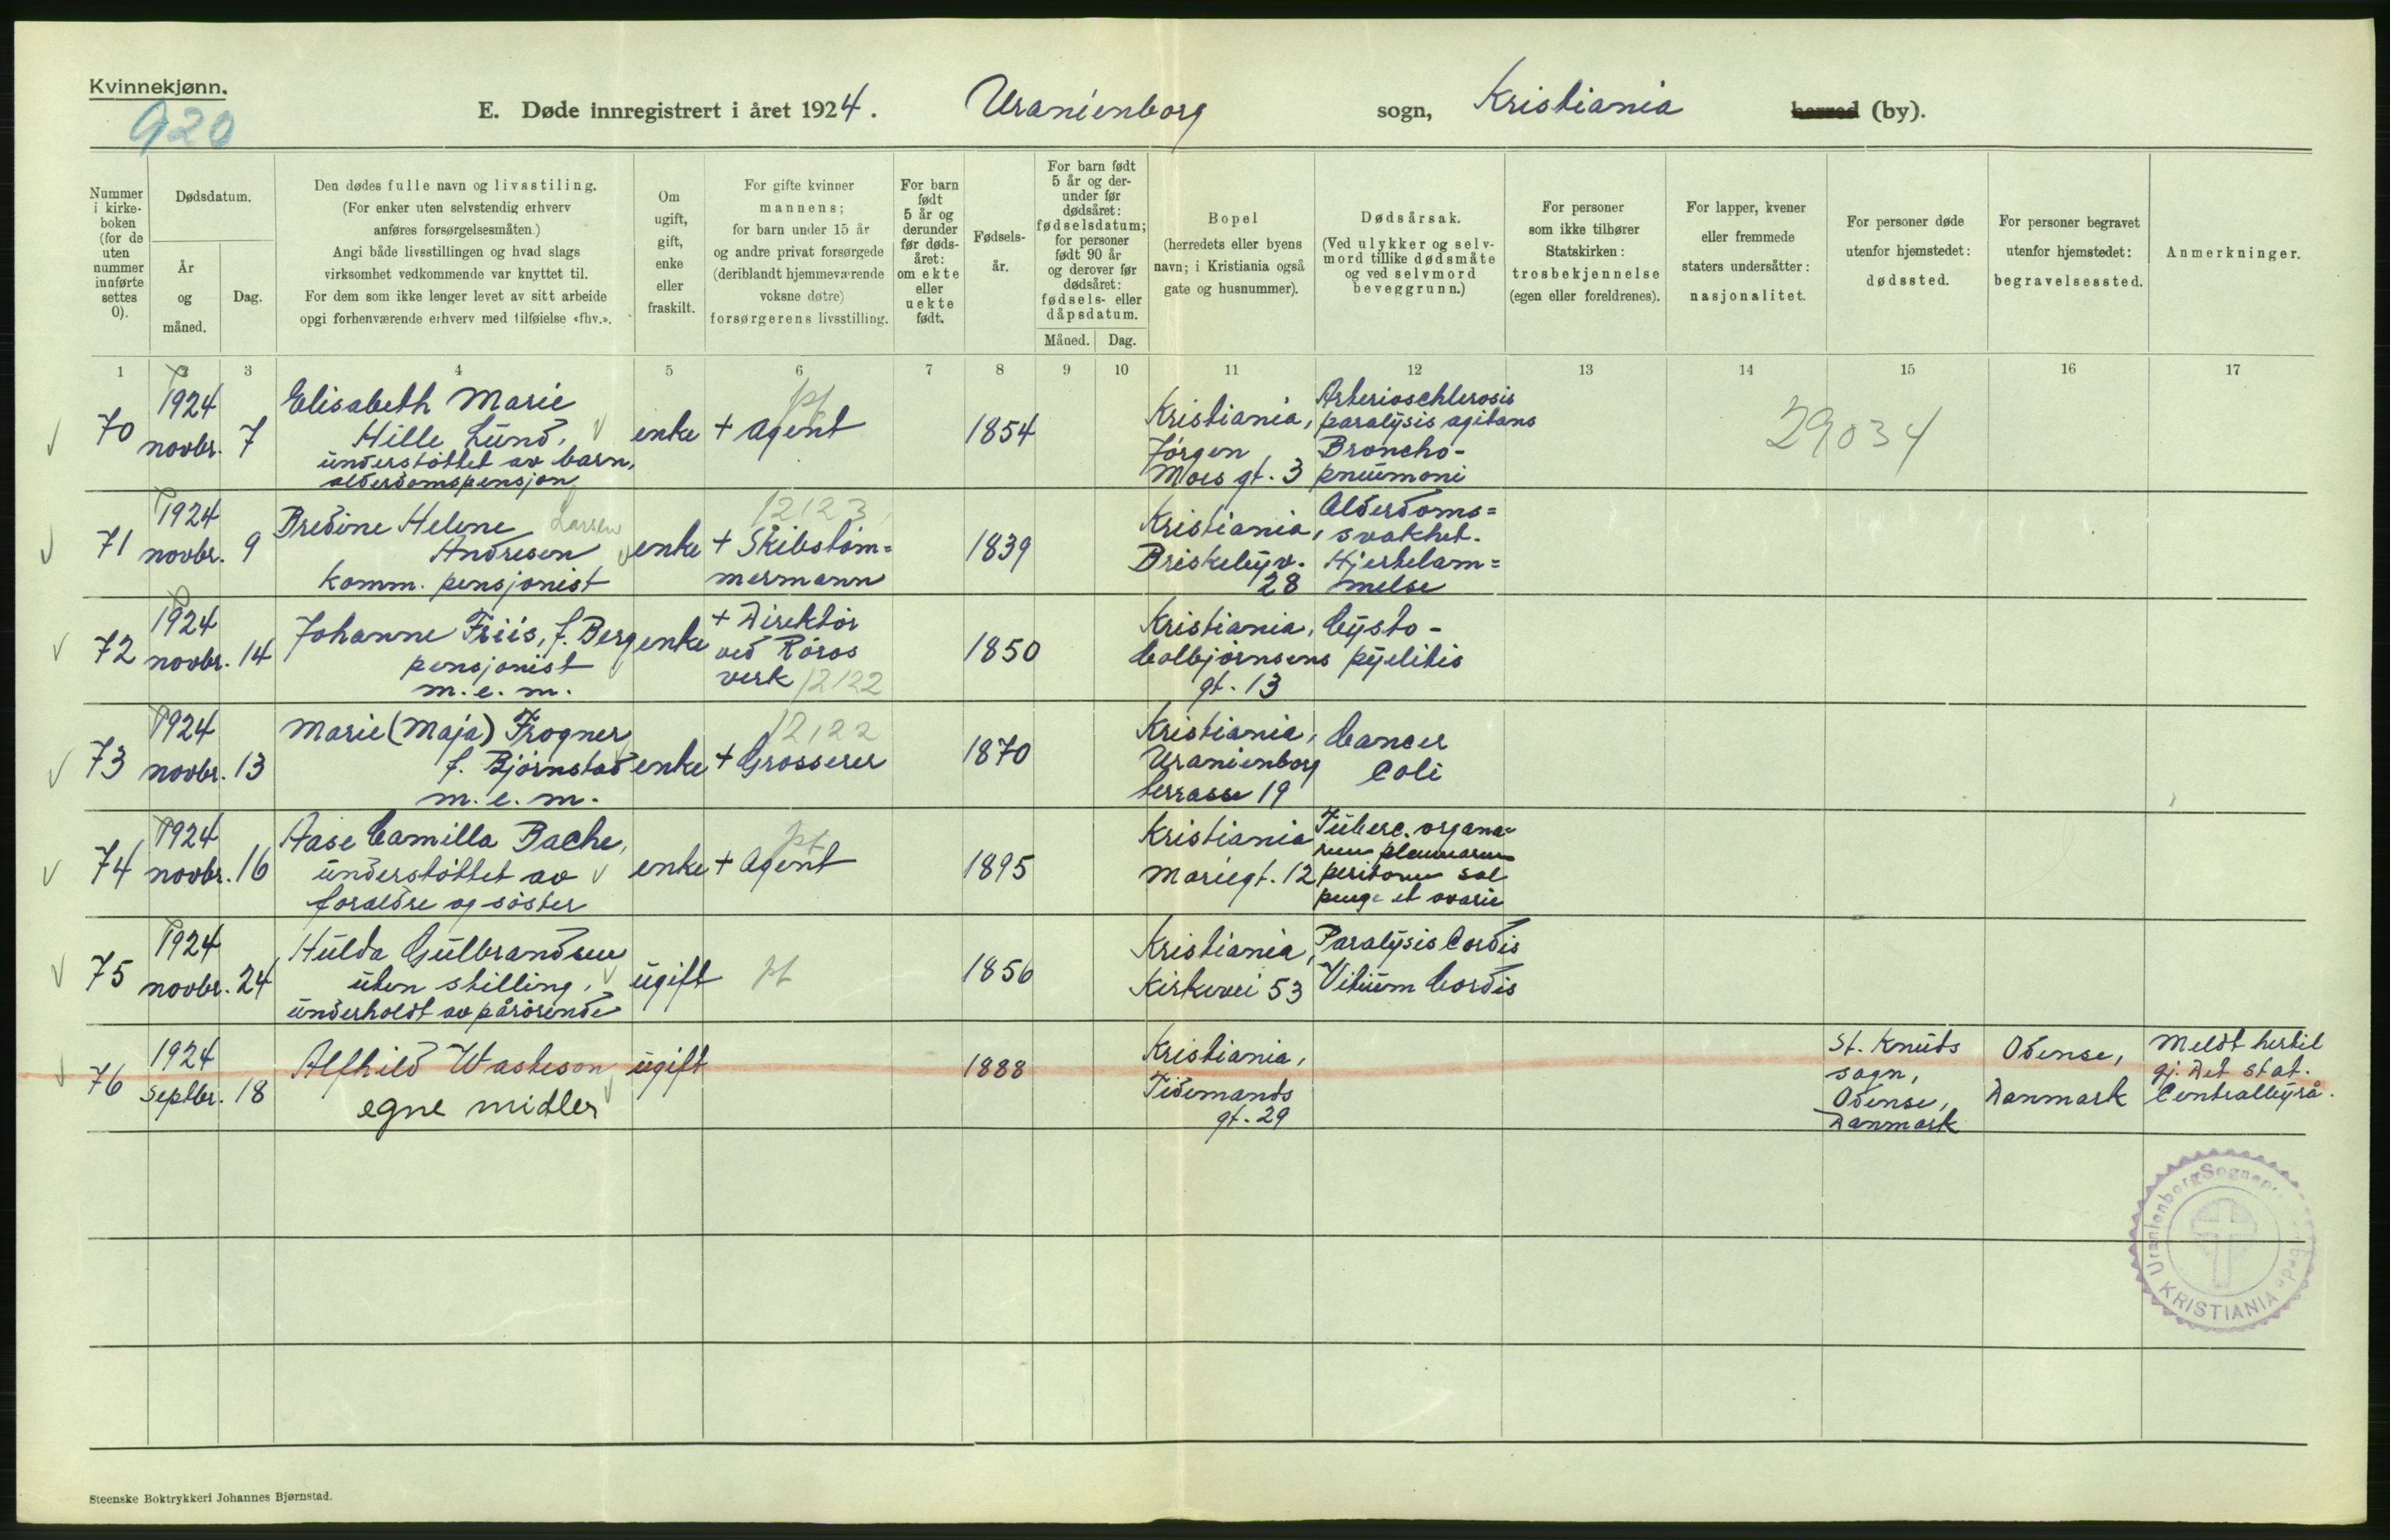 Kvinnekjønn.
920
E. Døde innregistrert i året 1924. Uranienborg sogn, Kristiania herred (by).
Nummer i kirke-boken (for de uten nummer innførte settes 0).
Dødsdatum.
År og måned.
Dag.
Den dødes fulle navn og livsstilling.
(For enker uten selvstendig erhverv
anføres forsørgelsesmåten.)
Angi både livsstillingen og hvad slags
virksomhet vedkommende var knyttet til.
For dem som ikke lenger levet av sitt arbeide
opgi forhenværende erhverv med tilføielse «fhv.».
Om
ugift,
gift,
enke
eller
fraskilt.
For gifte kvinner
mannens;
for barn under 15 år
og andre privat forsørgede
(deriblandt hjemmeværende
voksne døtre)
forsørgerens livsstilling.
For barn
født
5 år og
derunder
før døds-
året:
om ekte
eller
uekte
født.
Fødsels-
år.
For barn født
5 år og der-
under før
dødsåret:
fødselsdatum;
for personer
født 90 år
og derover før
dødsåret:
fødsels- eller
dåpsdatum.
Måned. Dag.
Bopel
(herredets eller byens
navn; i Kristiania også
gate og husnummer).
Dødsårsak.
(Ved ulykker og selv-
mord tillike dødsmåte
og ved selvmord
beveggrunn.)
For personer
som ikke tilhører
Statskirken:
trosbekjennelse
(egen eller foreldrenes).
For lapper, kvener
eller fremmede
staters undersåtter:
nasjonalitet.
For personer døde
utenfor hjemstedet:
dødssted.
For personer begravet
utenfor hjemstedet:
begravelsessted.
Anmerkninger.
1 2 3 4 5 6 7 8 9 10 11 12 13 14 15 16 17
70
1924
novbr. 7
Elisabeth Marie
Hille Lund.
understøttet av barn,
alderdomspensjon
enke
+ Agent
1854
Kristiania,
Jørgen
Moes gt. 3
Arterioschlerosis
paralysis agitans
Broncho-
pneumoni
29034
71
1924
novbr. 9
Bredine Helene Larsen
Andresen
komm. pensjonist
enke
12123
+ Skibstøm=
mermann
1839
Kristiania,
Briskebyv.
28
Alderdoms=
svakhet.
Hjertelam=
melse
72
1924
novbr. 14
Johanne Friis, f. Berg
pensjonist
m. e. m.
enke
+ Direktør
ved Røros
verk 12122
1850
Kristiania,
Colbjørnsens
gt. 13
Cysto-
pyelitis
73
1924
novbr. 13
Marie (Maja) Frogner
f. Bjørnstad
m. e. m.
enke
12122
+ Grosserer
1870
Kristiania,
Uranienborg
terrasse 19
Cancer
Coli
74
1924
novbr. 16
Aase Camilla Bache,
understøttet av
foreldre og søster
enke
pt
+ Agent
1895
Kristiania
Mariegt. 12
Tuberc. organa=
rum
et ovarie
75
1924
novbr. 24
Hulda Gulbrandsen
uten stilling.
underholdt av pårørende
ugift
pt
1856
Kristiania,
Kirkevei 53
Paralysis Cordis
Vitium Cordis
76
1924
septbr. 18
Alfhild Wasteson
egne midler
ugift
1888
Kristiania,
Tidemands
gt. 29
St. Knuds
sogn,
Odense,
Danmark
Odense,
Danmark
Meldt hertil
gj. Det stat.
Centralbyrå.
Uranienborg Sognep
KRISTIANIA
Steenske Boktrykkeri Johannes Bjørnstad.